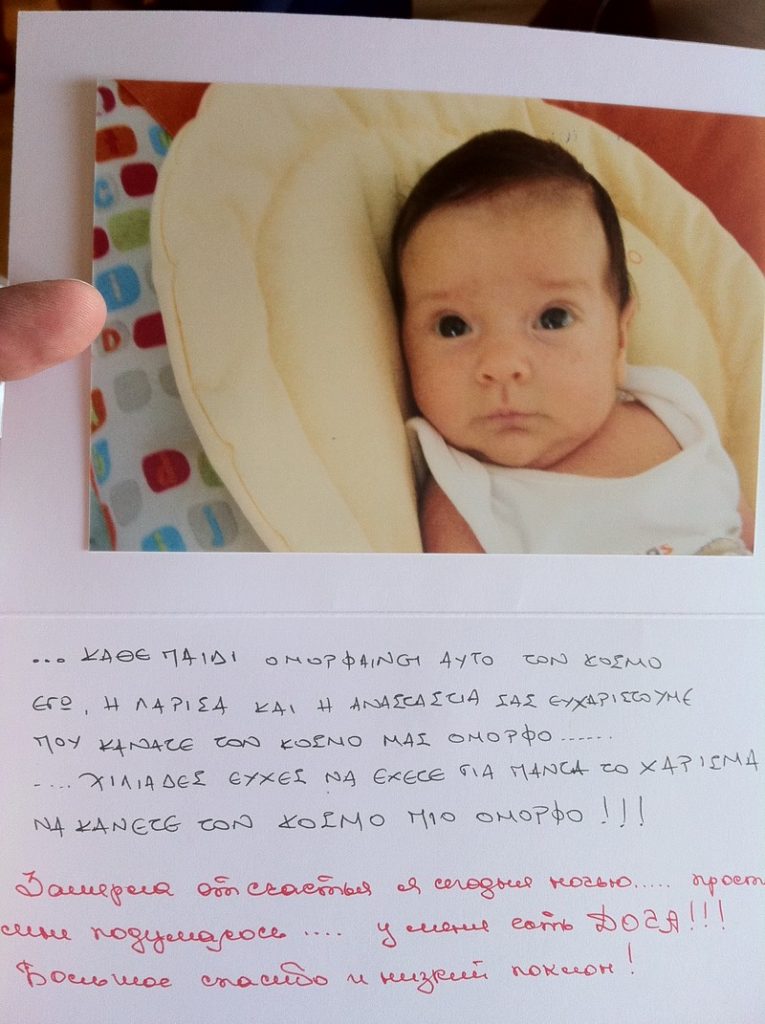 ... ΚΑΘΕ ΠΑΙΔΙ ΟΜΟΡΦΑΙΝΕΙ ΑΥΤΟ ΤΟΝ ΚΟΣΜΟ
ΕΓΩ, Η ΛΑΡΙΣΑ ΚΑΙ Η ΑΝΑΣΤΑΣΤΙΑ ΣΑΣ ΕΥΧΑΡΙΣΤΟΥΜΕ
ΠΟΥ ΚΑΝΑΤΕ ΤΟΝ ΚΟΣΜΟ ΜΑΣ ΟΜΟΡΦΟ ......
..... ΧΙΛΙΑΔΕΣ ΕΥΧΕΣ ΝΑ ΕΧΕΤΕ ΓΙΑ ΠΑΝΤΑ ΤΟ ΧΑΡΙΣΜΑ
ΝΑ ΚΑΝΕΤΕ ΤΟΝ ΚΟΣΜΟ ΠΙΟ ΟΜΟΡΦΟ !!!
Замерла от счастья я сегодня ночью..... прост
мне подумалось .... у меня есть ДОЧА!!!
Большое спасибо и низкий поклон!